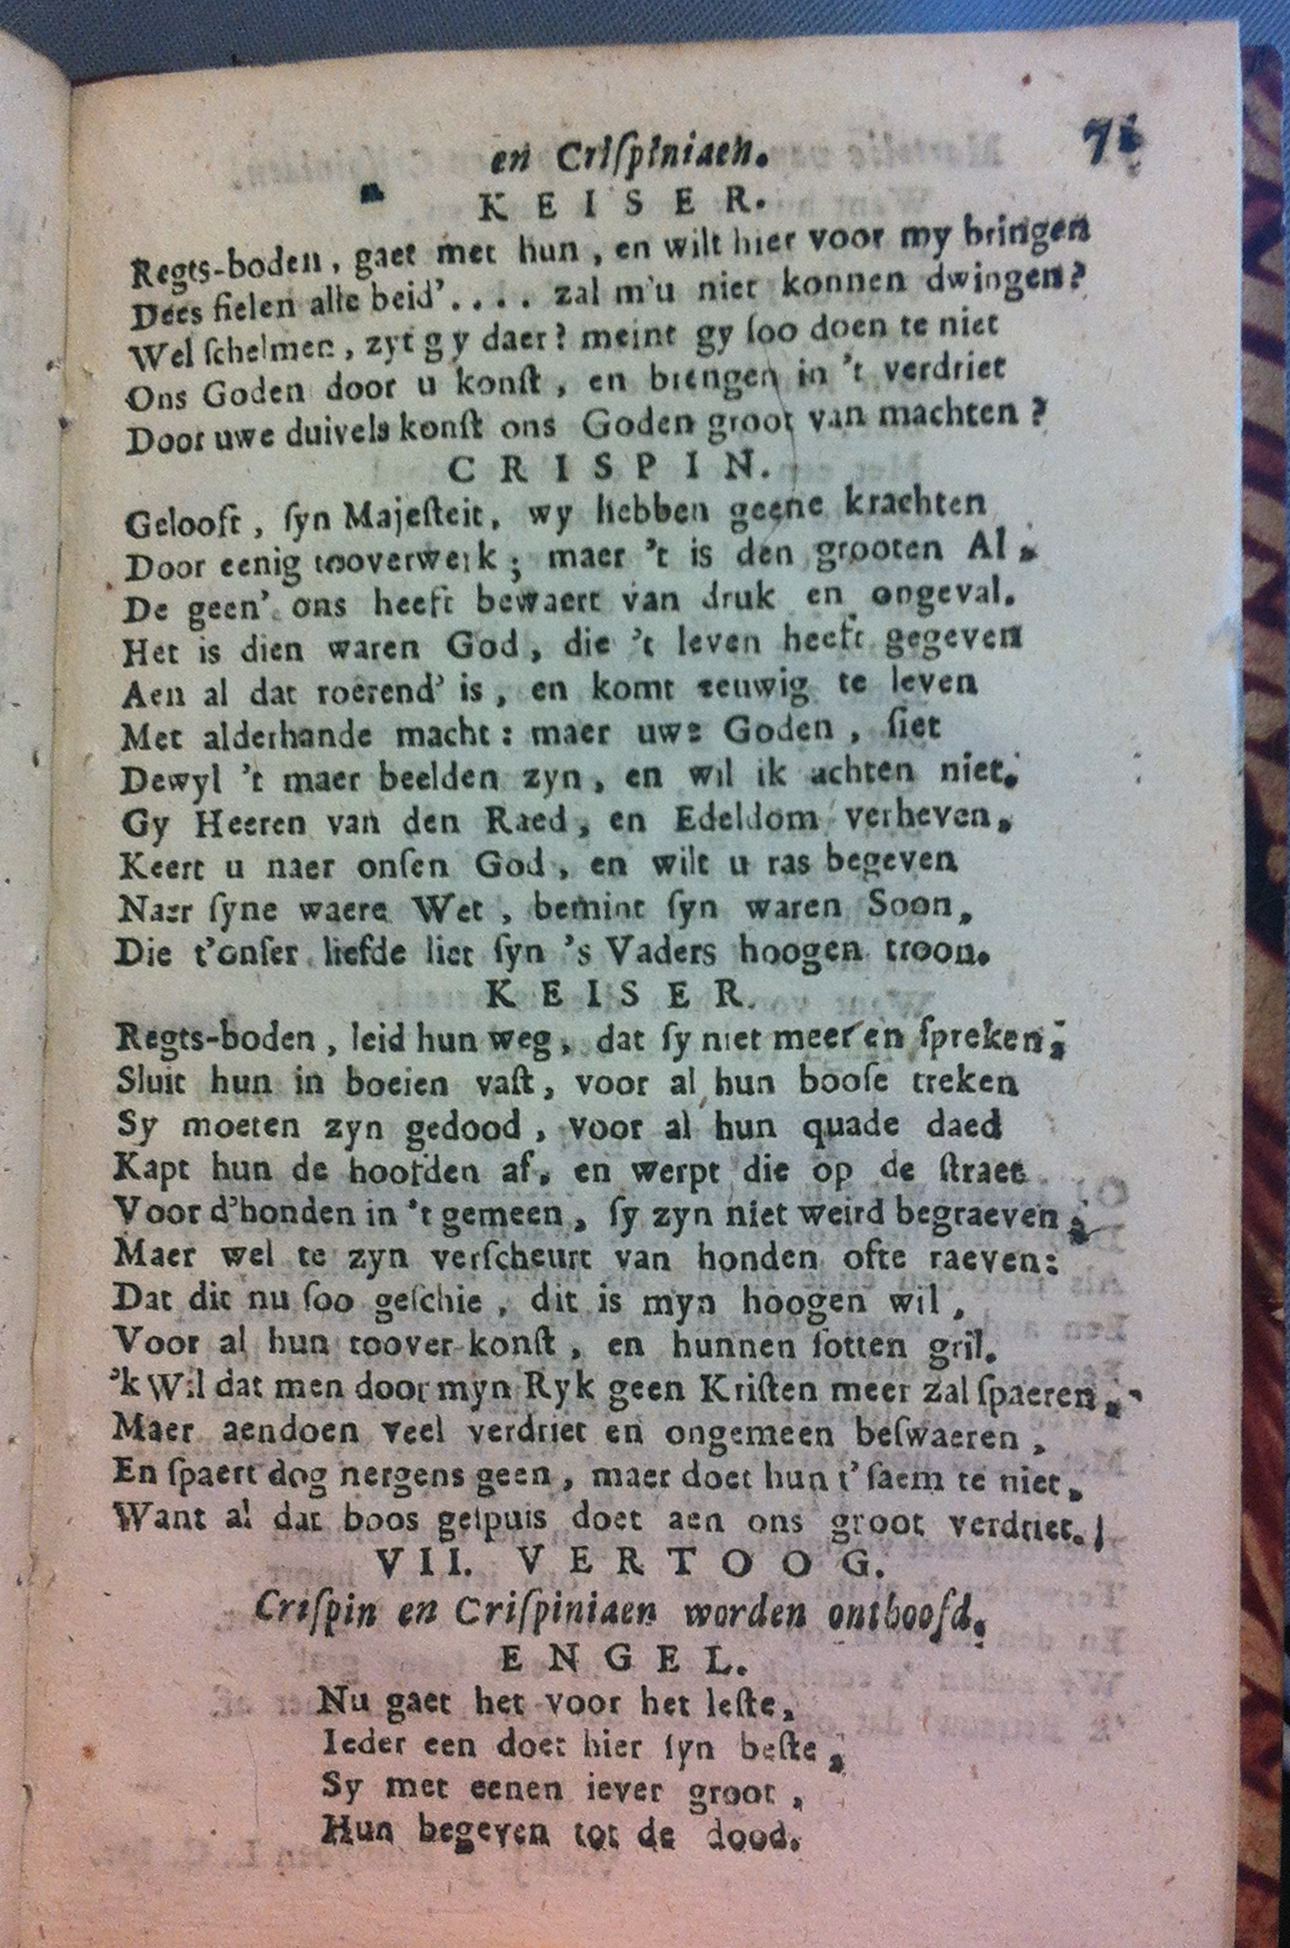 en Criſpiniaen. 71
KEISER.
Regts-boden, gaet met hun, en wilt hier voor my bringen
Dees fielen alle beid'.... zal m'u niet konnen dwingen?
Wel ſchelmen, zyt gy daer? meint gy ſoo doen te niet
Ons Goden door u konſt, en brengen in 't verdriet
Door uwe duivels konſt ons Goden groot van machten?
CRISPIN.
Gelooft, ſyn Majeſteit, wy hebben geene krachten
Door eenig tooverwerk; maer 't is den grooten Al,
De geen' ons heeft bewaert van druk en ongeval.
Het is dien waren God, die 't leven heeft gegeven
Aen al dat roerend' is, en komt eeuwig te leven
Met alderhande macht: maer uwe Goden, ſiet
Dewyl 't maer beelden zyn, en wil ik achten niet.
Gy Heeren van den Raed, en Edeldom verheven,
Keert u naer onſen God, en wilt u ras begeven
Naer ſyne waere Wet, bemint ſyn waren Soon,
Die t'onſer liefde liet ſyn 's Vaders hoogen troon.
KEISER.
Regts-boden, leid hun weg, dat ſy niet meer en ſpreken;
Sluit hun in boeien vaſt, voor al hun booſe treken
Sy moeten zyn gedood, voor al hun quade daed
Kapt hun de hoofden af, en werpt die op de ſtraet
Voor d'honden in 't gemeen, ſy zyn niet weird begraeven;
Maer wel te zyn verſcheurt van honden ofte raeven:
Dat dit nu ſoo geſchie, dit is myn hoogen wil,
Voor al hun toover-konſt, en hunnen ſotten gril.
'k Wil dat men door myn Ryk geen Kriſten meer zal ſpaeren,
Maer aendoen veel verdriet en ongemeen beſwaeren,
En ſpaert dog nergens geen, maer doet hun t'ſaem te niet,
Want al dat boos geſpuis doet aen ons groot verdriet.
VII. VERTOOG.
Criſpin en Criſpiniaen worden onthoofd.
ENGEL.
Nu gaet het voor het leſte,
Ieder een doet hier ſyn beſte,
Sy met eenen iever groot,
Hun begeven tot de dood.